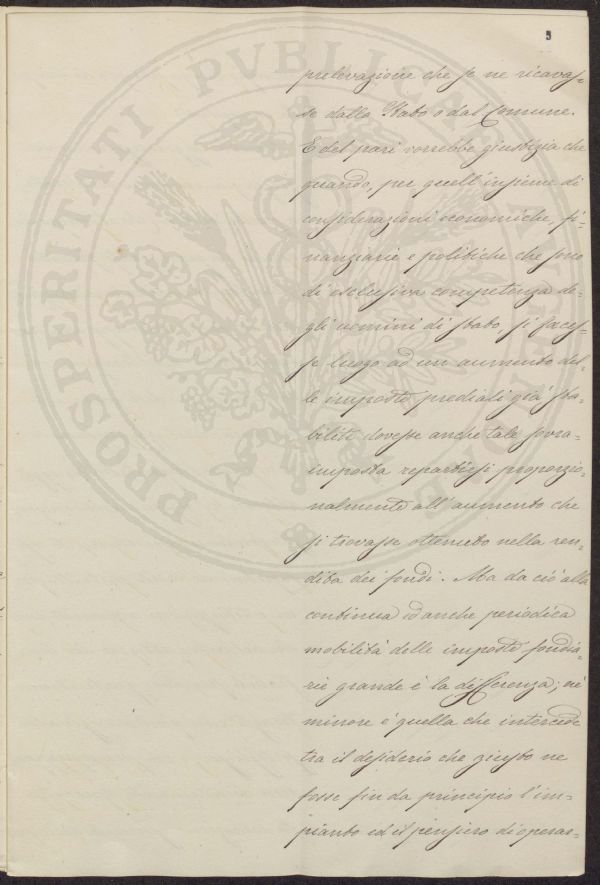 5
prelevazione che se ne ricavas=
se dallo Stato o dal Comune.
E del pari vorrebbe giustizia che
quando, per quell'insieme di
considerazioni economiche, fi=
nanziarie e politiche che sono
di esclusiva competenza de=
gli uomini di stato, si faces=
se luogo ad un aumento del=
le imposte prediali già sta=
bilite dovesse anche tale sovra=
imposta repartirsi proporzio=
nalmente all'aumento che
si trovasse ottenuto nella ren=
dita dei fondi. Ma da ciò alla
continua ed anche periodica
mobilità delle imposte fondia=
rie grande è la differenza; nè
minore è quella che intercede
tra il desiderio che giusto ne
fosse fin da principio l'im=
pianto ed il pensiero di operar=
PROSPERITATI PVBLICAE AVGENDAE